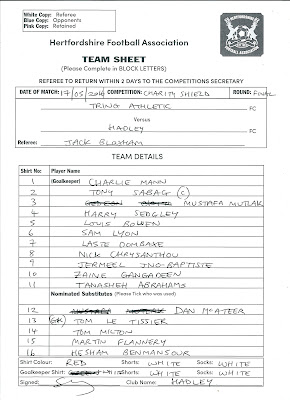 White Copy: Referee
Blue Copy: Opponents
Pink Copy: Retained
HERTFORDSHIRE
FOOTBALL ASSOCIATION
Hertfordshire Football Association
TEAM SHEET
(Please Complete in BLOCK LETTERS)
REFEREE TO RETURN WITHIN 2 DAYS TO THE COMPETITIONS SECRETARY
DATE OF MATCH: 17/05/2016 COMPETITION: CHARITY SHIELD ROUND: FINAL
TRING ATHLETIC FC
Versus
HADLEY FC
Referee: JACK BLOXHAM
TEAM DETAILS
Shirt No: Player Name
1 (Goalkeeper) CHARLIE MANN
2 TONY SABAG (C)
3 MUSTAFA MUTLAK
4 HARRY SEDGLEY
5 LOUIS BOWEN
6 SAM LYON
7 LASTE DOMBAXE
8 NICK CHRYSANTHOU
9 JERMEEL JNO-BAPTISTE
10 ZAINE GANGADEEN
11 TANASHEH ABRAHAMS
Nominated Substitutes (Please Tick who was used)
12 MUSTAFA MUTLAK DAN McATEER
13 (GK) TOM LE TISSIER
14 TOM MILTON
15 MARTIN FLANNERY
16 HESHAM BENMANSOUR
Shirt Colour: RED Shorts: WHITE Socks: WHITE
Goalkeeper Shirt: Shorts: WHITE Socks: WHITE
Signed: Club Name: HADLEY